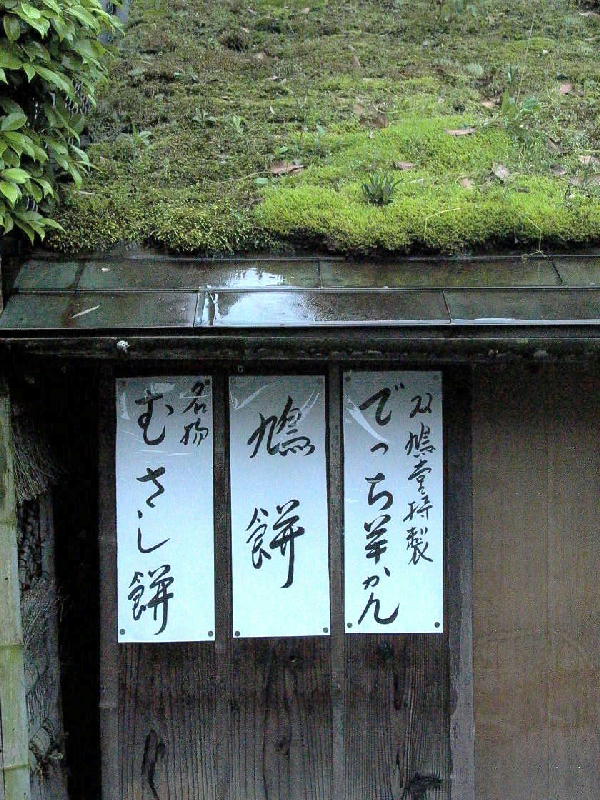 双鳩堂特製
でっち羊かん
鳩餅
名物
むさし餅